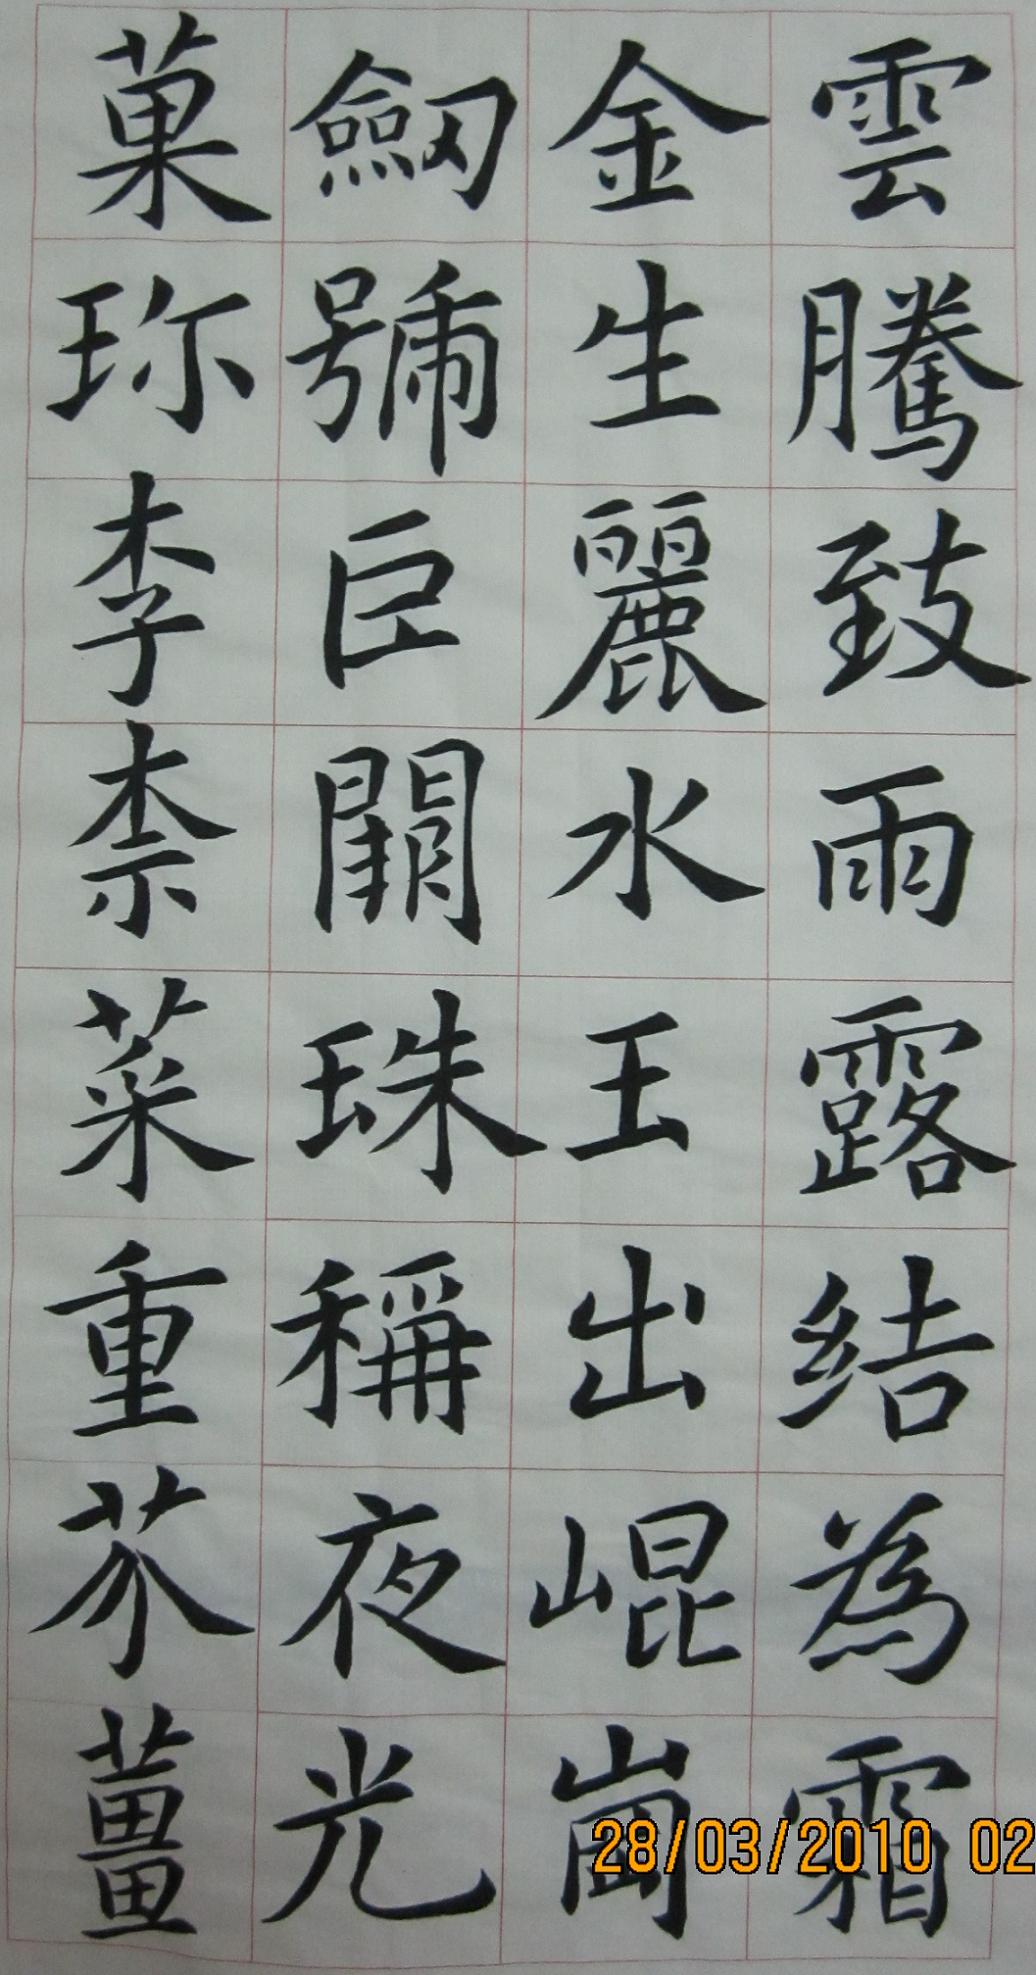 雲騰致雨露結為霜
金生麗水玉出崐崗
劔號巨闕珠稱夜光
菓珎李柰菜重芥薑
28/03/2010 02